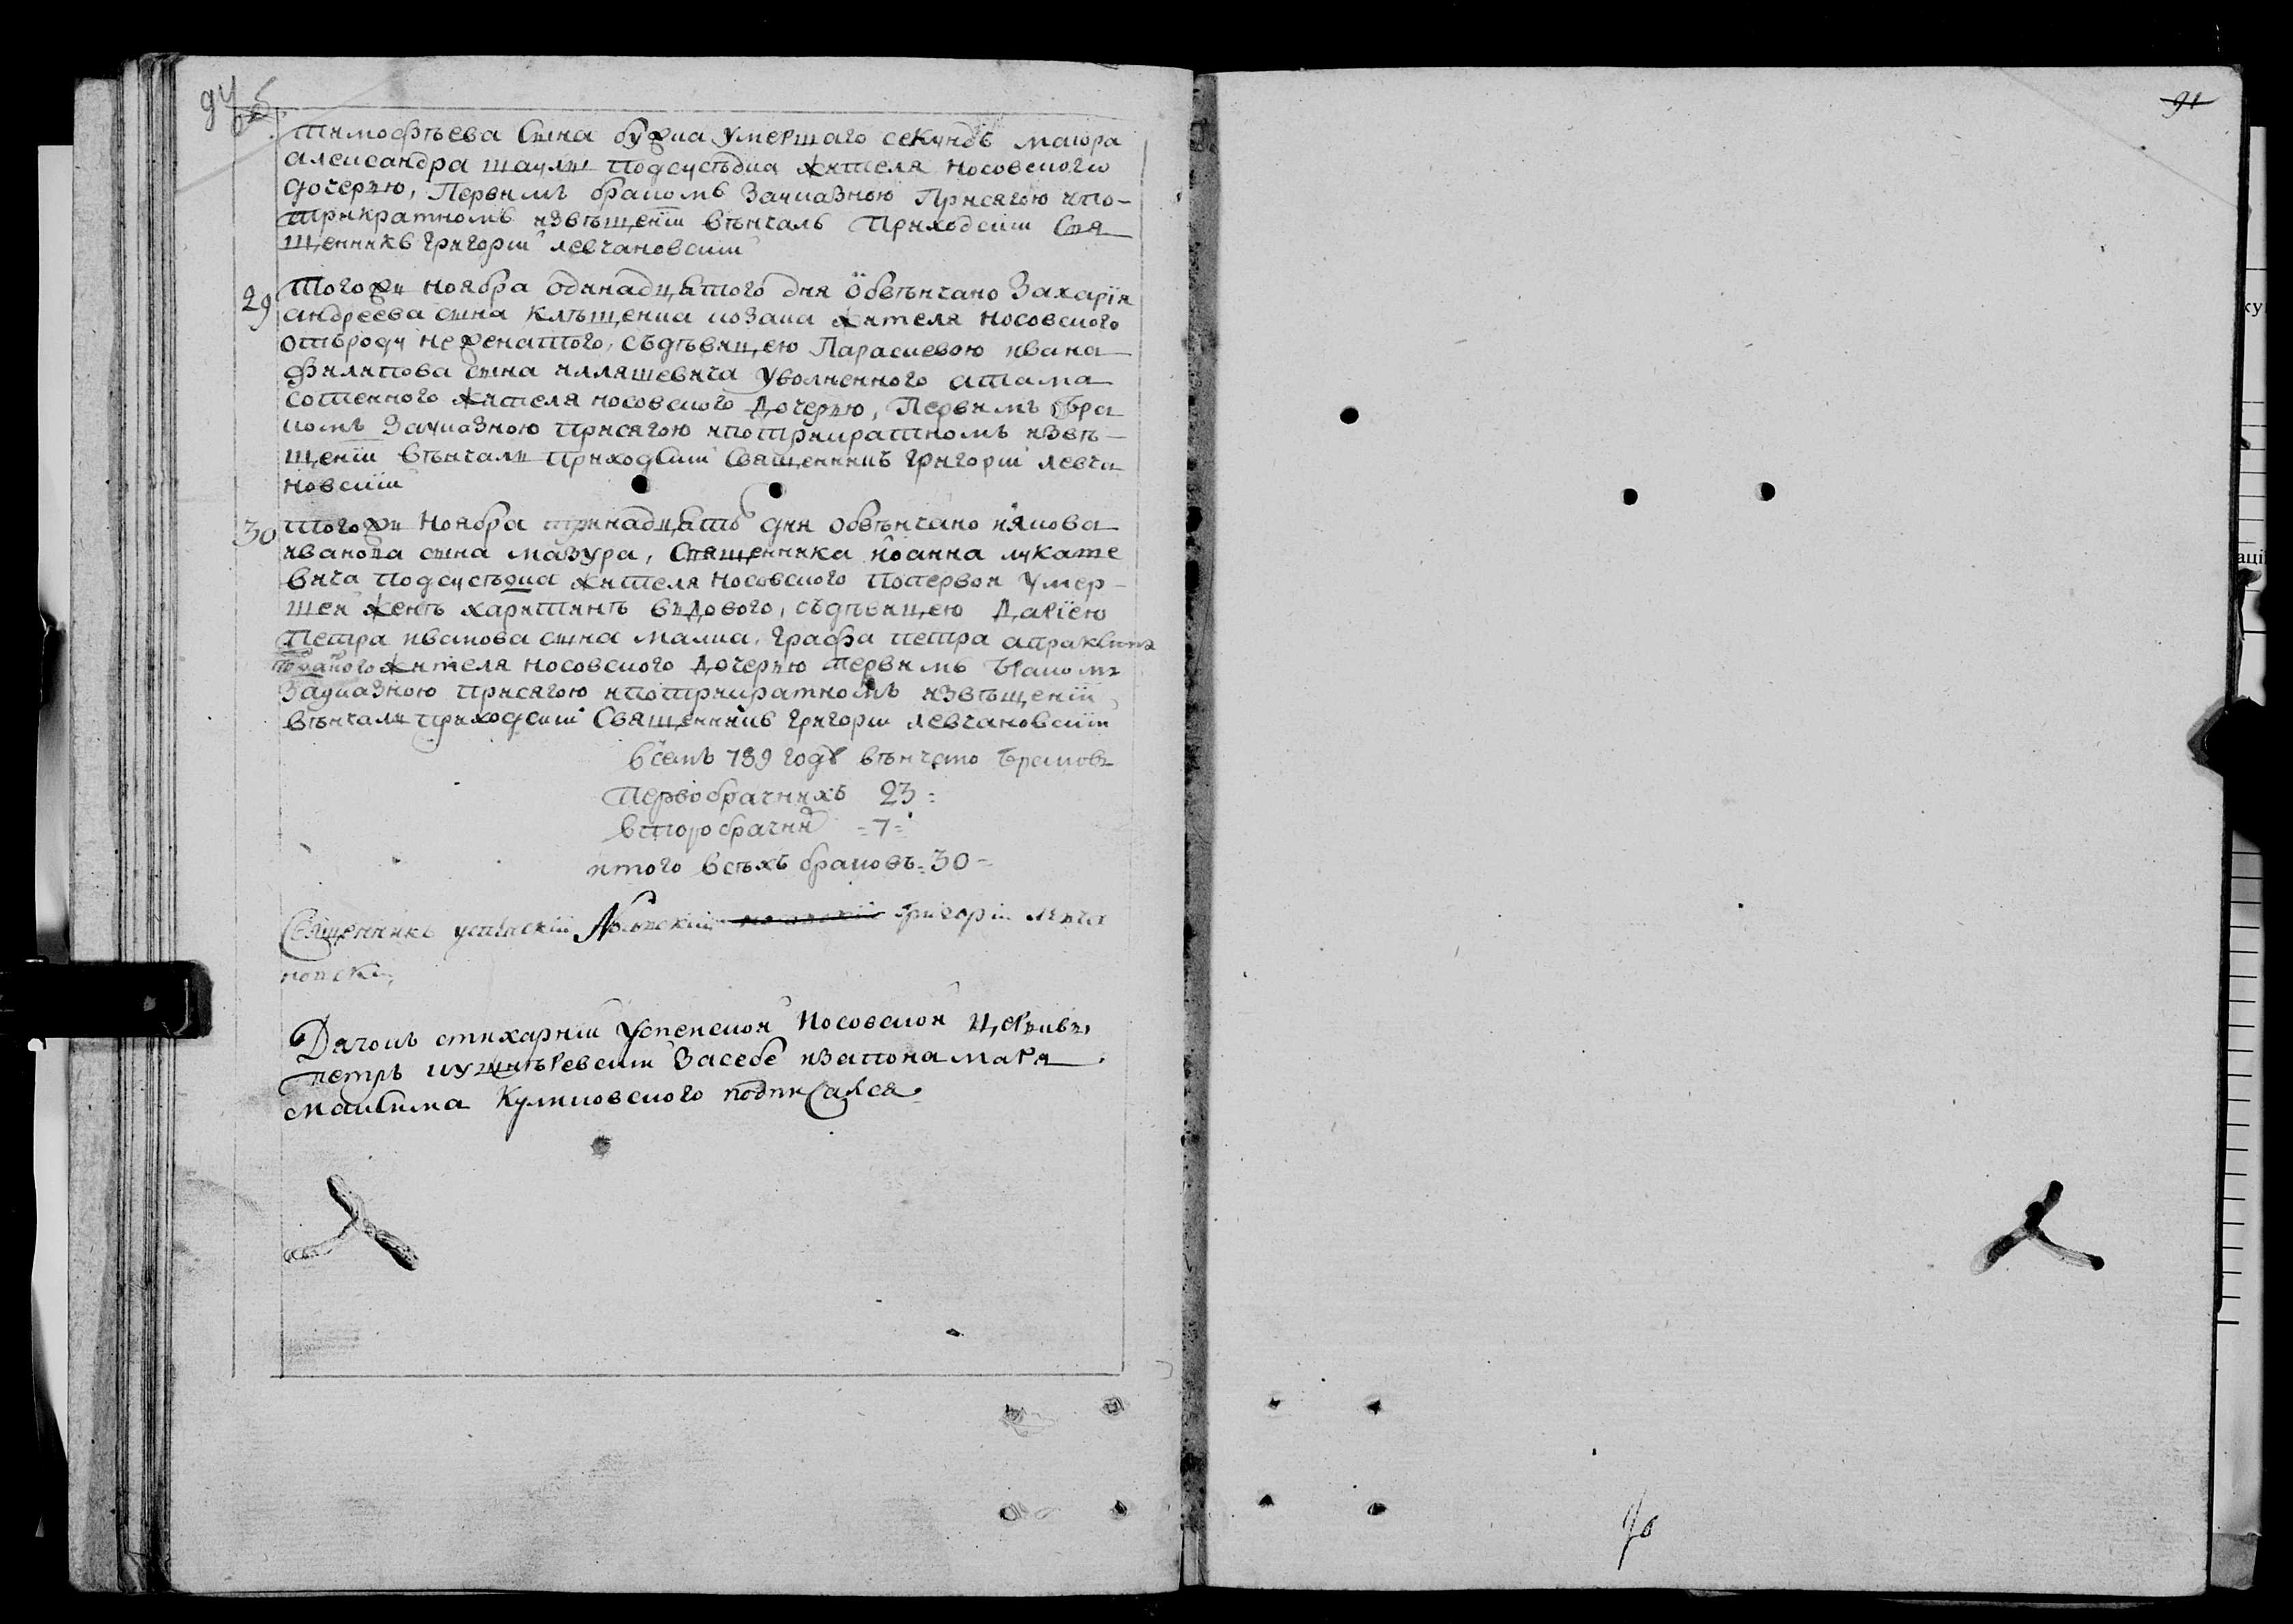 91
Тимофѣева сына бужка умершаго секундъ маиора
александра шаули подсусѣдка жителя носовского
дочерью, Первимъ бракомъ Зауказною Присягою ипо-
трикратномъ извѣщеніи вѣнчалъ Приходскіи Свя
щенникъ Григории левчановскіи
29 Тогожъ ноября одинадцятого дня Обвѣнчано Захарія
андреева сына Клѣщенка козака жителя носовского
отъроду неженатого, съдѣвицею Параскевою ивана
Филипова сына илляшевича уволненного атама
сотенного жителя носовского Дочерью, Первимъ Бра
комъ Зауказною присягою ипотрикратномъ извѣ-
щеніи вѣнчалъ приходскіи Священникъ Григории левча
новскіи
30 Тогожъ Ноября тринадцять дня обвѣнчано якова
иванова сына мазура, Священника иоанна лукаше
вича подсусѣдка жителя носовского поперной умер-
шей женѣ харитинѣ вдового, съдѣвицею Даріею
Петра иванова сына малка, графа петра апраксина
жителя носовского дочерью первимъ Бракомъ
Зауказною присягою ипотрикратномъ извѣщеніи
вѣнчалъ приходскіи Священникъ Григории левчановскіи
всемъ 789 годѣ вѣнчано Браковъ
Первобрачнихъ 23 :
второбрачни =7=
итого всѣхъ браковъ =30=
Священникъ успенскіи Носовскіи Григоріи Левча
новскіи
Дячокъ стихарніи Успенской Носовской церкви
петръ кушнѣревскіи Засебе изапонамаря
максима Куликовского подписался
90